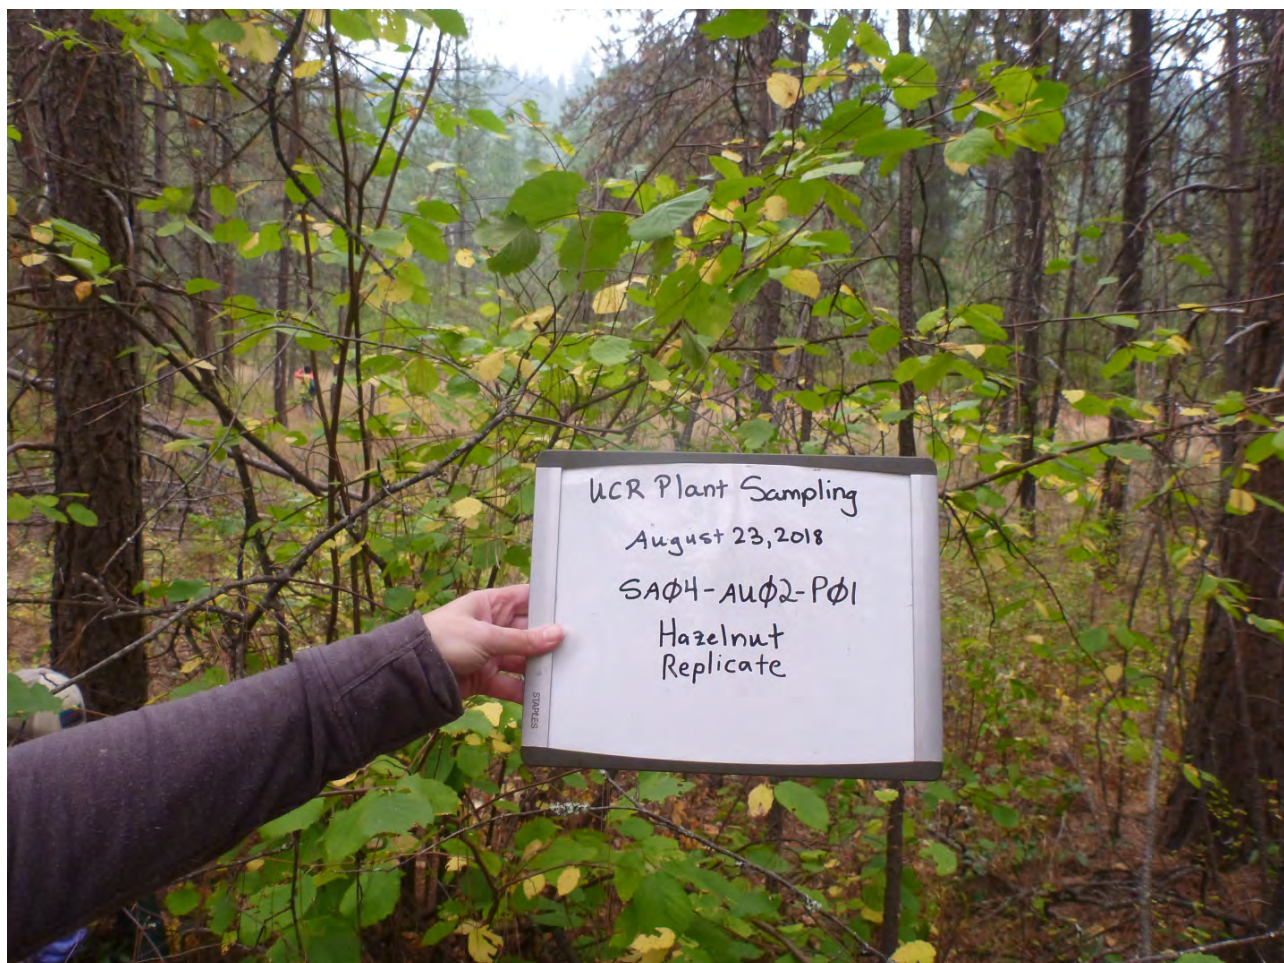 UCR Plant Sampling
August 23, 2018
SAØ4-AUØ2-PØ1
Hazelnut
Replicate
STAPLES